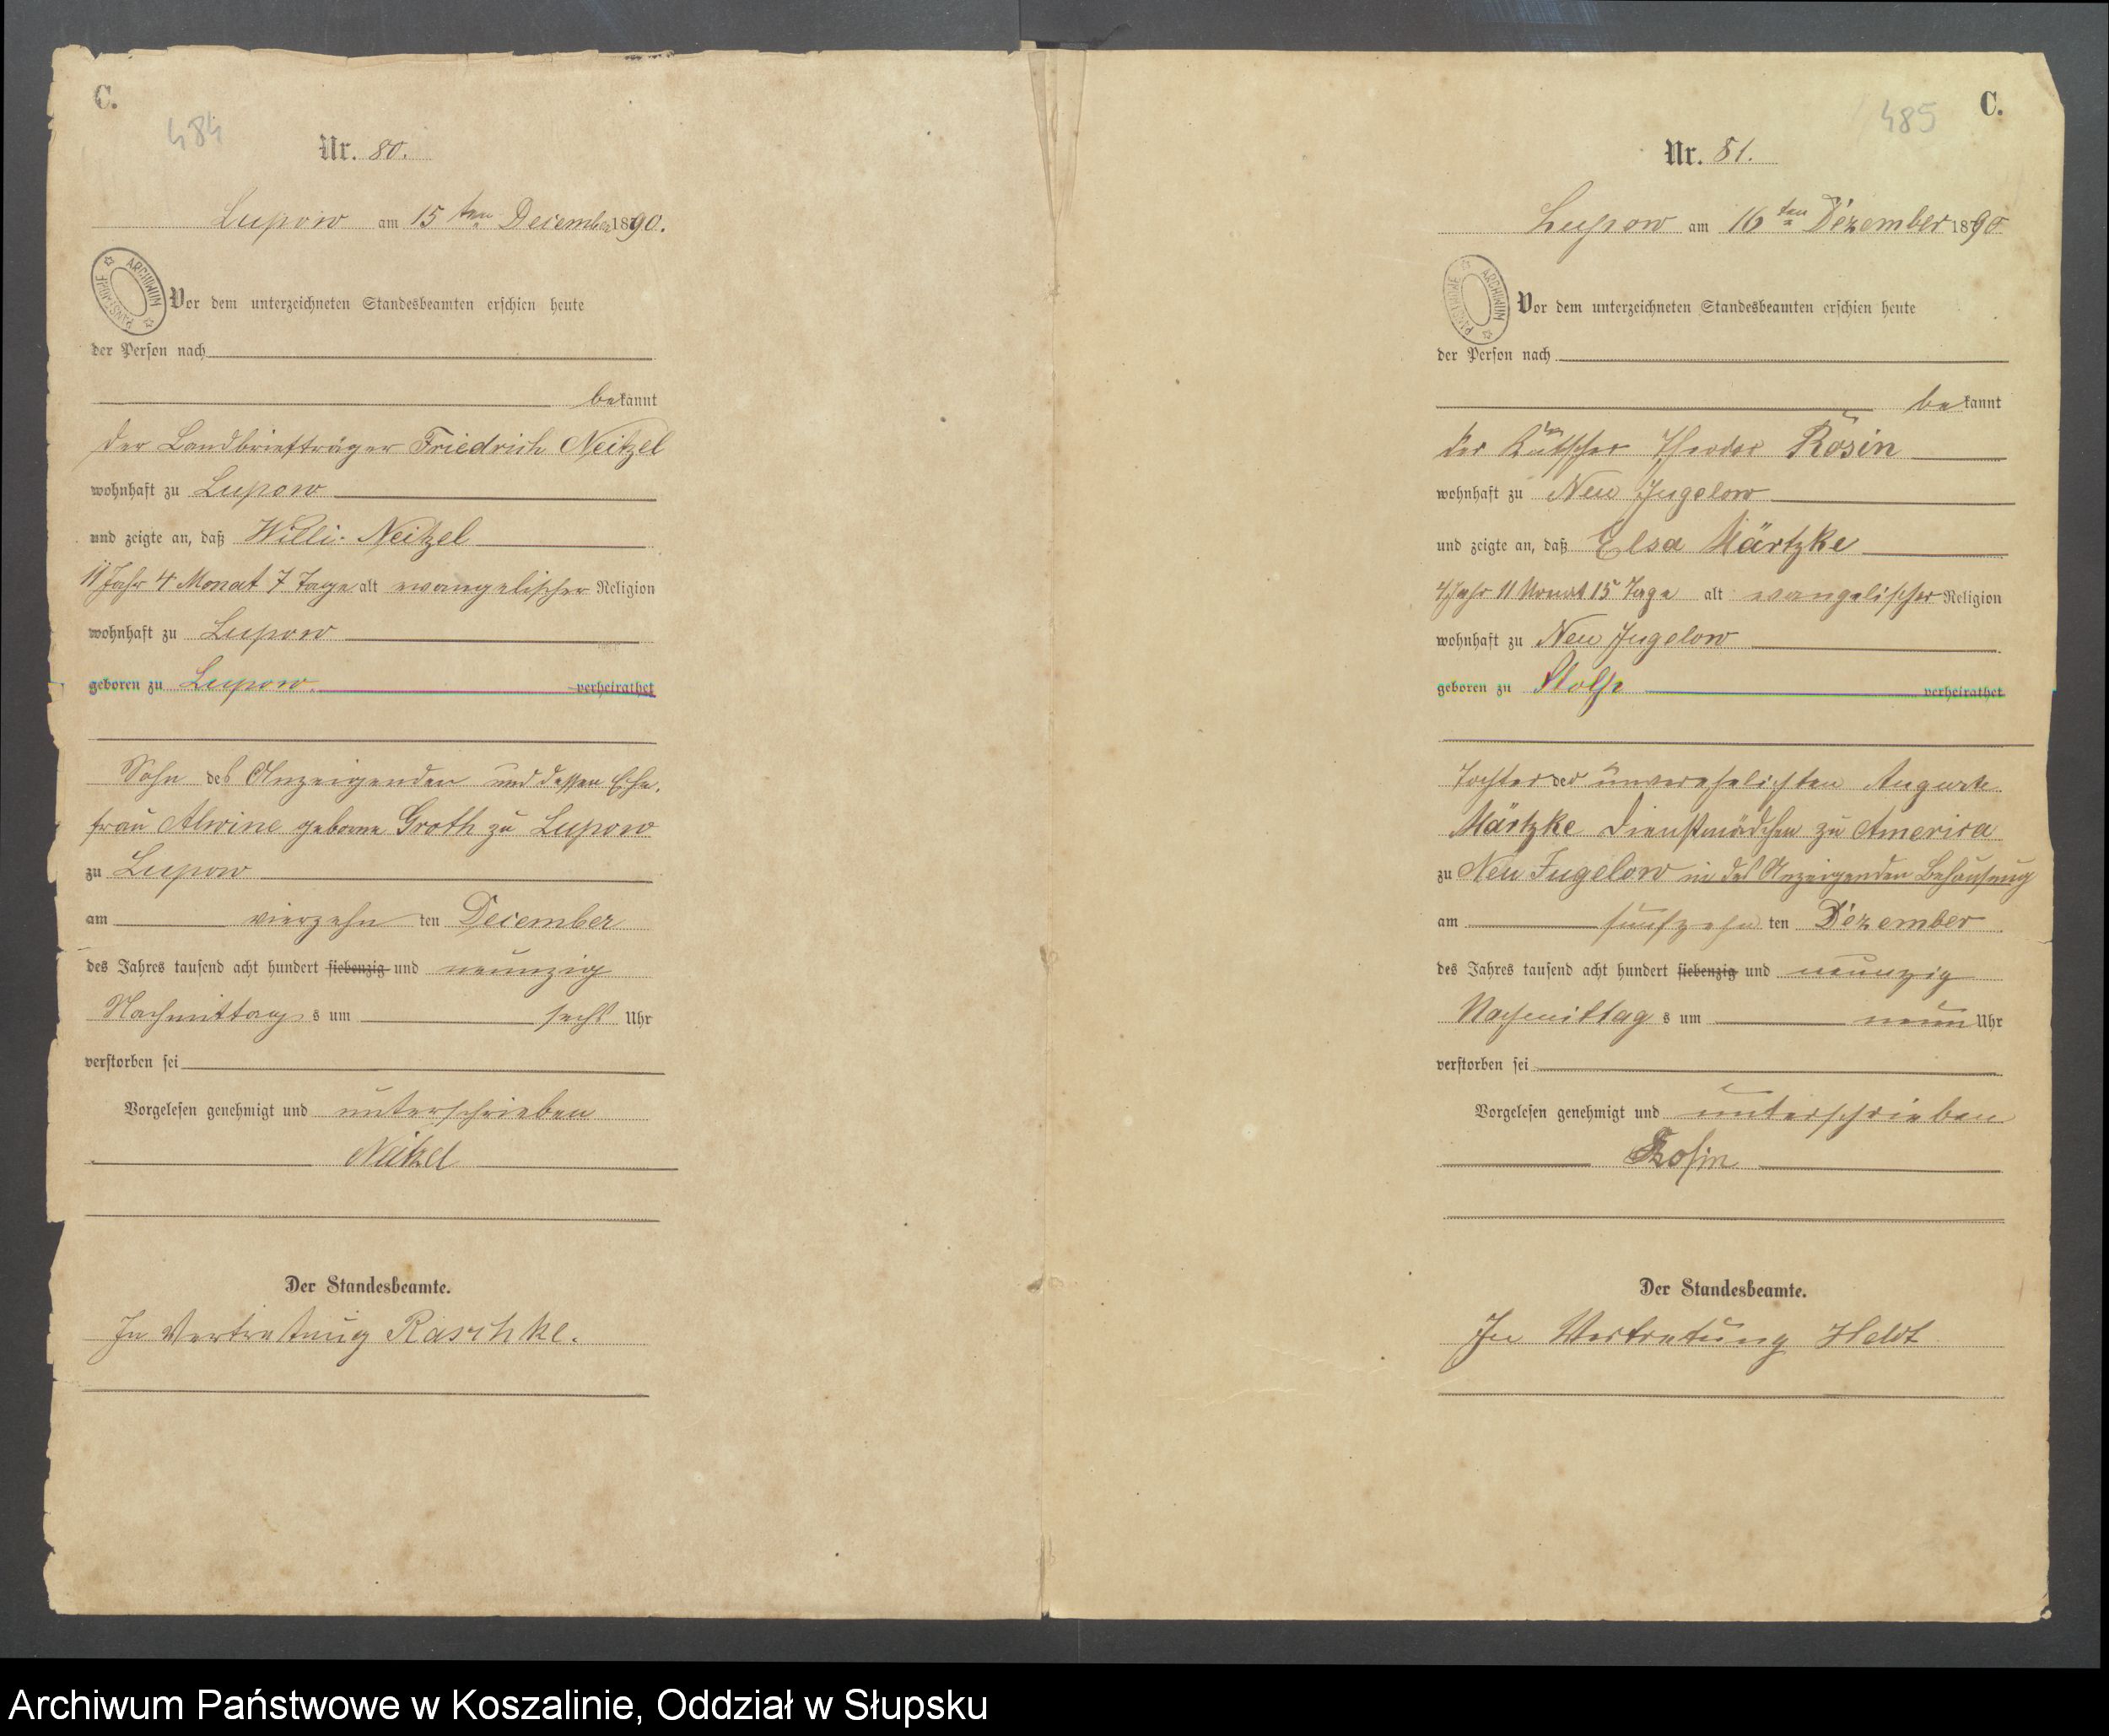 C.
484
Nr. 80.
Lupow am 15ten December 1890.
ARCHIWUM PAŃSTWOWE
Vor dem unterzeichneten Standesbeamten erschien heute
der Person nach
bekannt
der Landbriefträger Friedrich Neitzel
wohnhaft zu Lupow
und zeigte an, daß Willi Neitzel
11 Jahr 4 Monat 7 Tage alt evangelischer Religion
wohnhaft zu Lupow
geboren zu Lupow. verheirathet
Sohn des Anzeigenden und dessen Ehe-
frau Alwine geborne Groth zu Lupow
zu Lupow
am vierzehn ten December
des Jahres tausend acht hundert siebenzig und neunzig
Nachmittag s um sechs Uhr
verstorben sei
Vorgelesen genehmigt und unterschrieben
Neitzel
Der Standesbeamte.
In Vertretung Raschke.
485
C.
Nr. 81.
Lupow am 16ten Dezember 1890
ARCHIWUM PAŃSTWOWE
Vor dem unterzeichneten Standesbeamten erschien heute
der Person nach
bekannt
der Kutscher Theodor Rosin
wohnhaft zu Neu Jugelow
und zeigte an, daß Elsa Märtzke
4 Jahr 11 Monat 15 Tage alt evangelischer Religion
wohnhaft zu Neu Jugelow
geboren zu Stolp verheirathet
Tochter der unverehelichten Auguste
Märtzke Dienstmädchen zu America
zu Neu Jugelow in des Anzeigenden Behausung
am fünfzehn ten Dezember
des Jahres tausend acht hundert siebenzig und neunzig
Nachmittag s um neun Uhr
verstorben sei
Vorgelesen genehmigt und unterschrieben
Rosin
Der Standesbeamte.
In Vertretung Heldt
Archiwum Państwowe w Koszalinie, Oddział w Słupsku